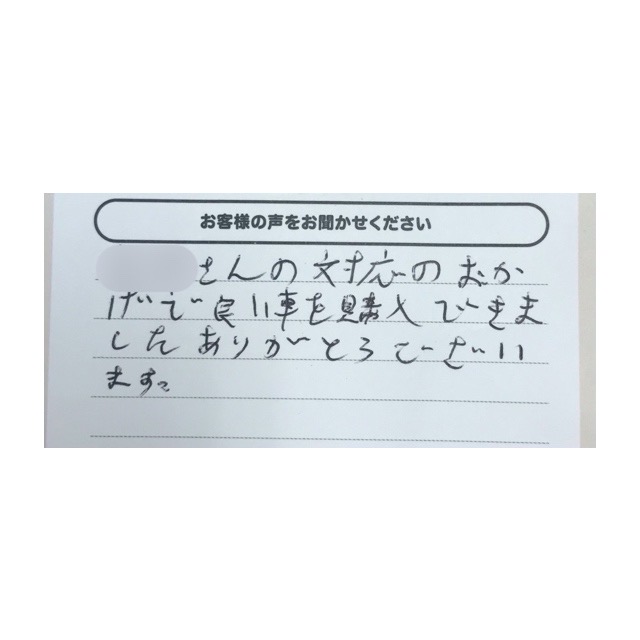 お客様の声をお聞かせください
さんの対応のおか
げで良い車を購入できま
したありがとうございい
ます。